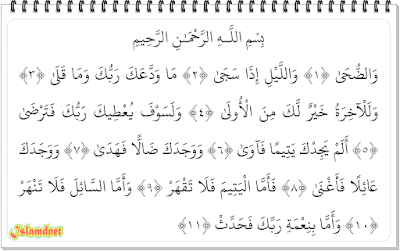 بِسْمِ اللَّـهِ الرَّحْمَـٰنِ الرَّحِيمِ
وَالضُّحَىٰ ﴿١﴾ وَاللَّيْلِ إِذَا سَجَىٰ ﴿٢﴾ مَا وَدَّعَكَ رَبُّكَ وَمَا قَلَىٰ ﴿٣﴾
وَلَلْآخِرَةُ خَيْرٌ لَّكَ مِنَ الْأُولَىٰ ﴿٤﴾ وَلَسَوْفَ يُعْطِيكَ رَبُّكَ فَتَرْضَىٰ
﴿٥﴾ أَلَمْ يَجِدْكَ يَتِيمًا فَآوَىٰ ﴿٦﴾ وَوَجَدَكَ ضَالًّا فَهَدَىٰ ﴿٧﴾ وَوَجَدَكَ
عَائِلًا فَأَغْنَىٰ ﴿٨﴾ فَأَمَّا الْيَتِيمَ فَلَا تَقْهَرْ ﴿٩﴾ وَأَمَّا السَّائِلَ فَلَا تَنْهَرْ
﴿١٠﴾ وَأَمَّا بِنِعْمَةِ رَبِّكَ فَحَدِّثْ ﴿١١﴾
Islamdnet